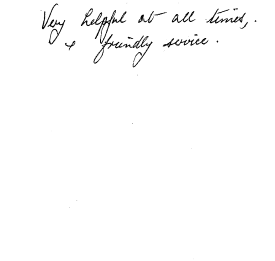 Very helpful at all times,.
& friendly service.